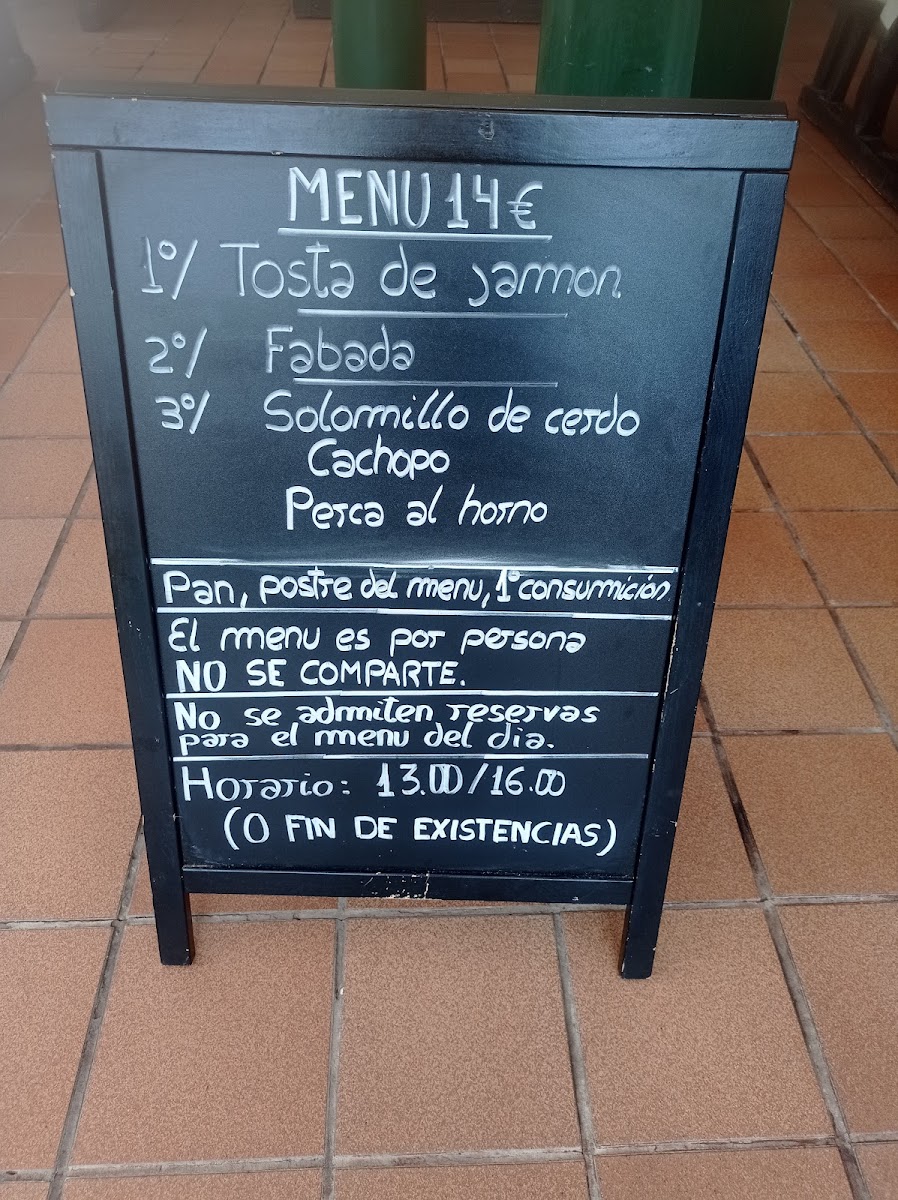 MENU 14€
1º/ Tosta de jamon
2º/ Fabada
3º/ Solomillo de cerdo
Cachopo
Perca al horno
Pan, postre del menu, 1ª consumición.
El menu es por persona
NO SE COMPARTE.
No se admiten reservas
para el menu del dia.
Horario: 13.00/16.00
(O FIN DE EXISTENCIAS)